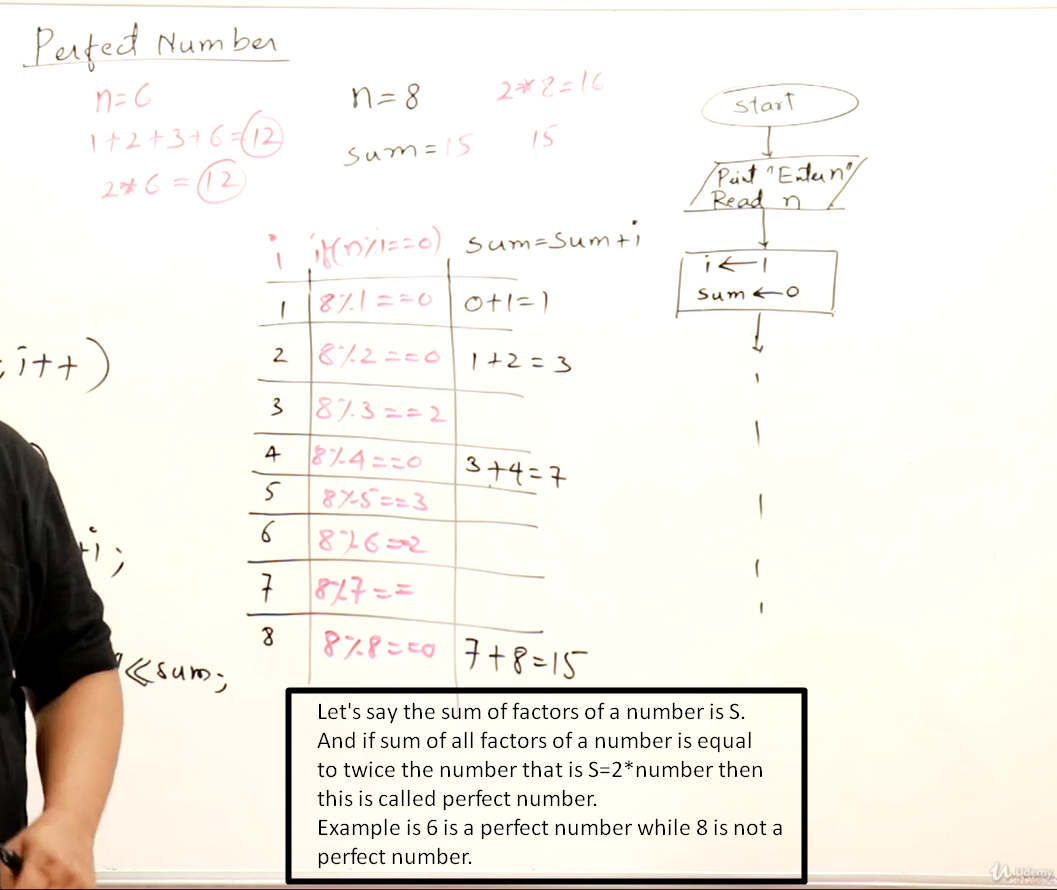 Perfect Number
n=6
1+2+3+6=12
2*6=12
n=8
sum=15
2*8=16
15
i if(n%i==0) sum=sum+i
1 8%1==0 0+1=1
2 8%2==0 1+2=3
3 8%3==2
4 8%4==0 3+4=7
5 8%5==3
6 8%6=2
7 8%7==
8 8%8==0 7+8=15
; i++)
+i;
<<sum;
Start
Print "Enter n"
Read n
i←1
sum←0
Let's say the sum of factors of a number is S.
And if sum of all factors of a number is equal
to twice the number that is S=2*number then
this is called perfect number.
Example is 6 is a perfect number while 8 is not a
perfect number.
Udemy